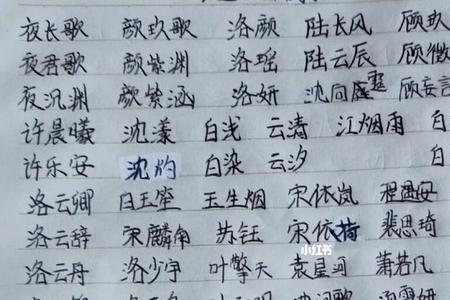 夜长歌 颜玖歌 洛颜 陆长风 顾玖
夜君歌 颜紫渊 洛瑶 陆云辰 顾微
夜沉渊 颜紫涵 洛妍 沈向霆 顾妄言
许晨曦 沈漾 白浅 云清 江烟雨 白
许乐安 沈灼 白染 云汐 白
洛云卿 白玉笙 玉生烟 宋依岚 程温安
洛云辞 宋麟角 苏钰 宋依椅 裴思琦
小红书
洛云丹 洛少宇 叶擎天 袁星河 萧若凡